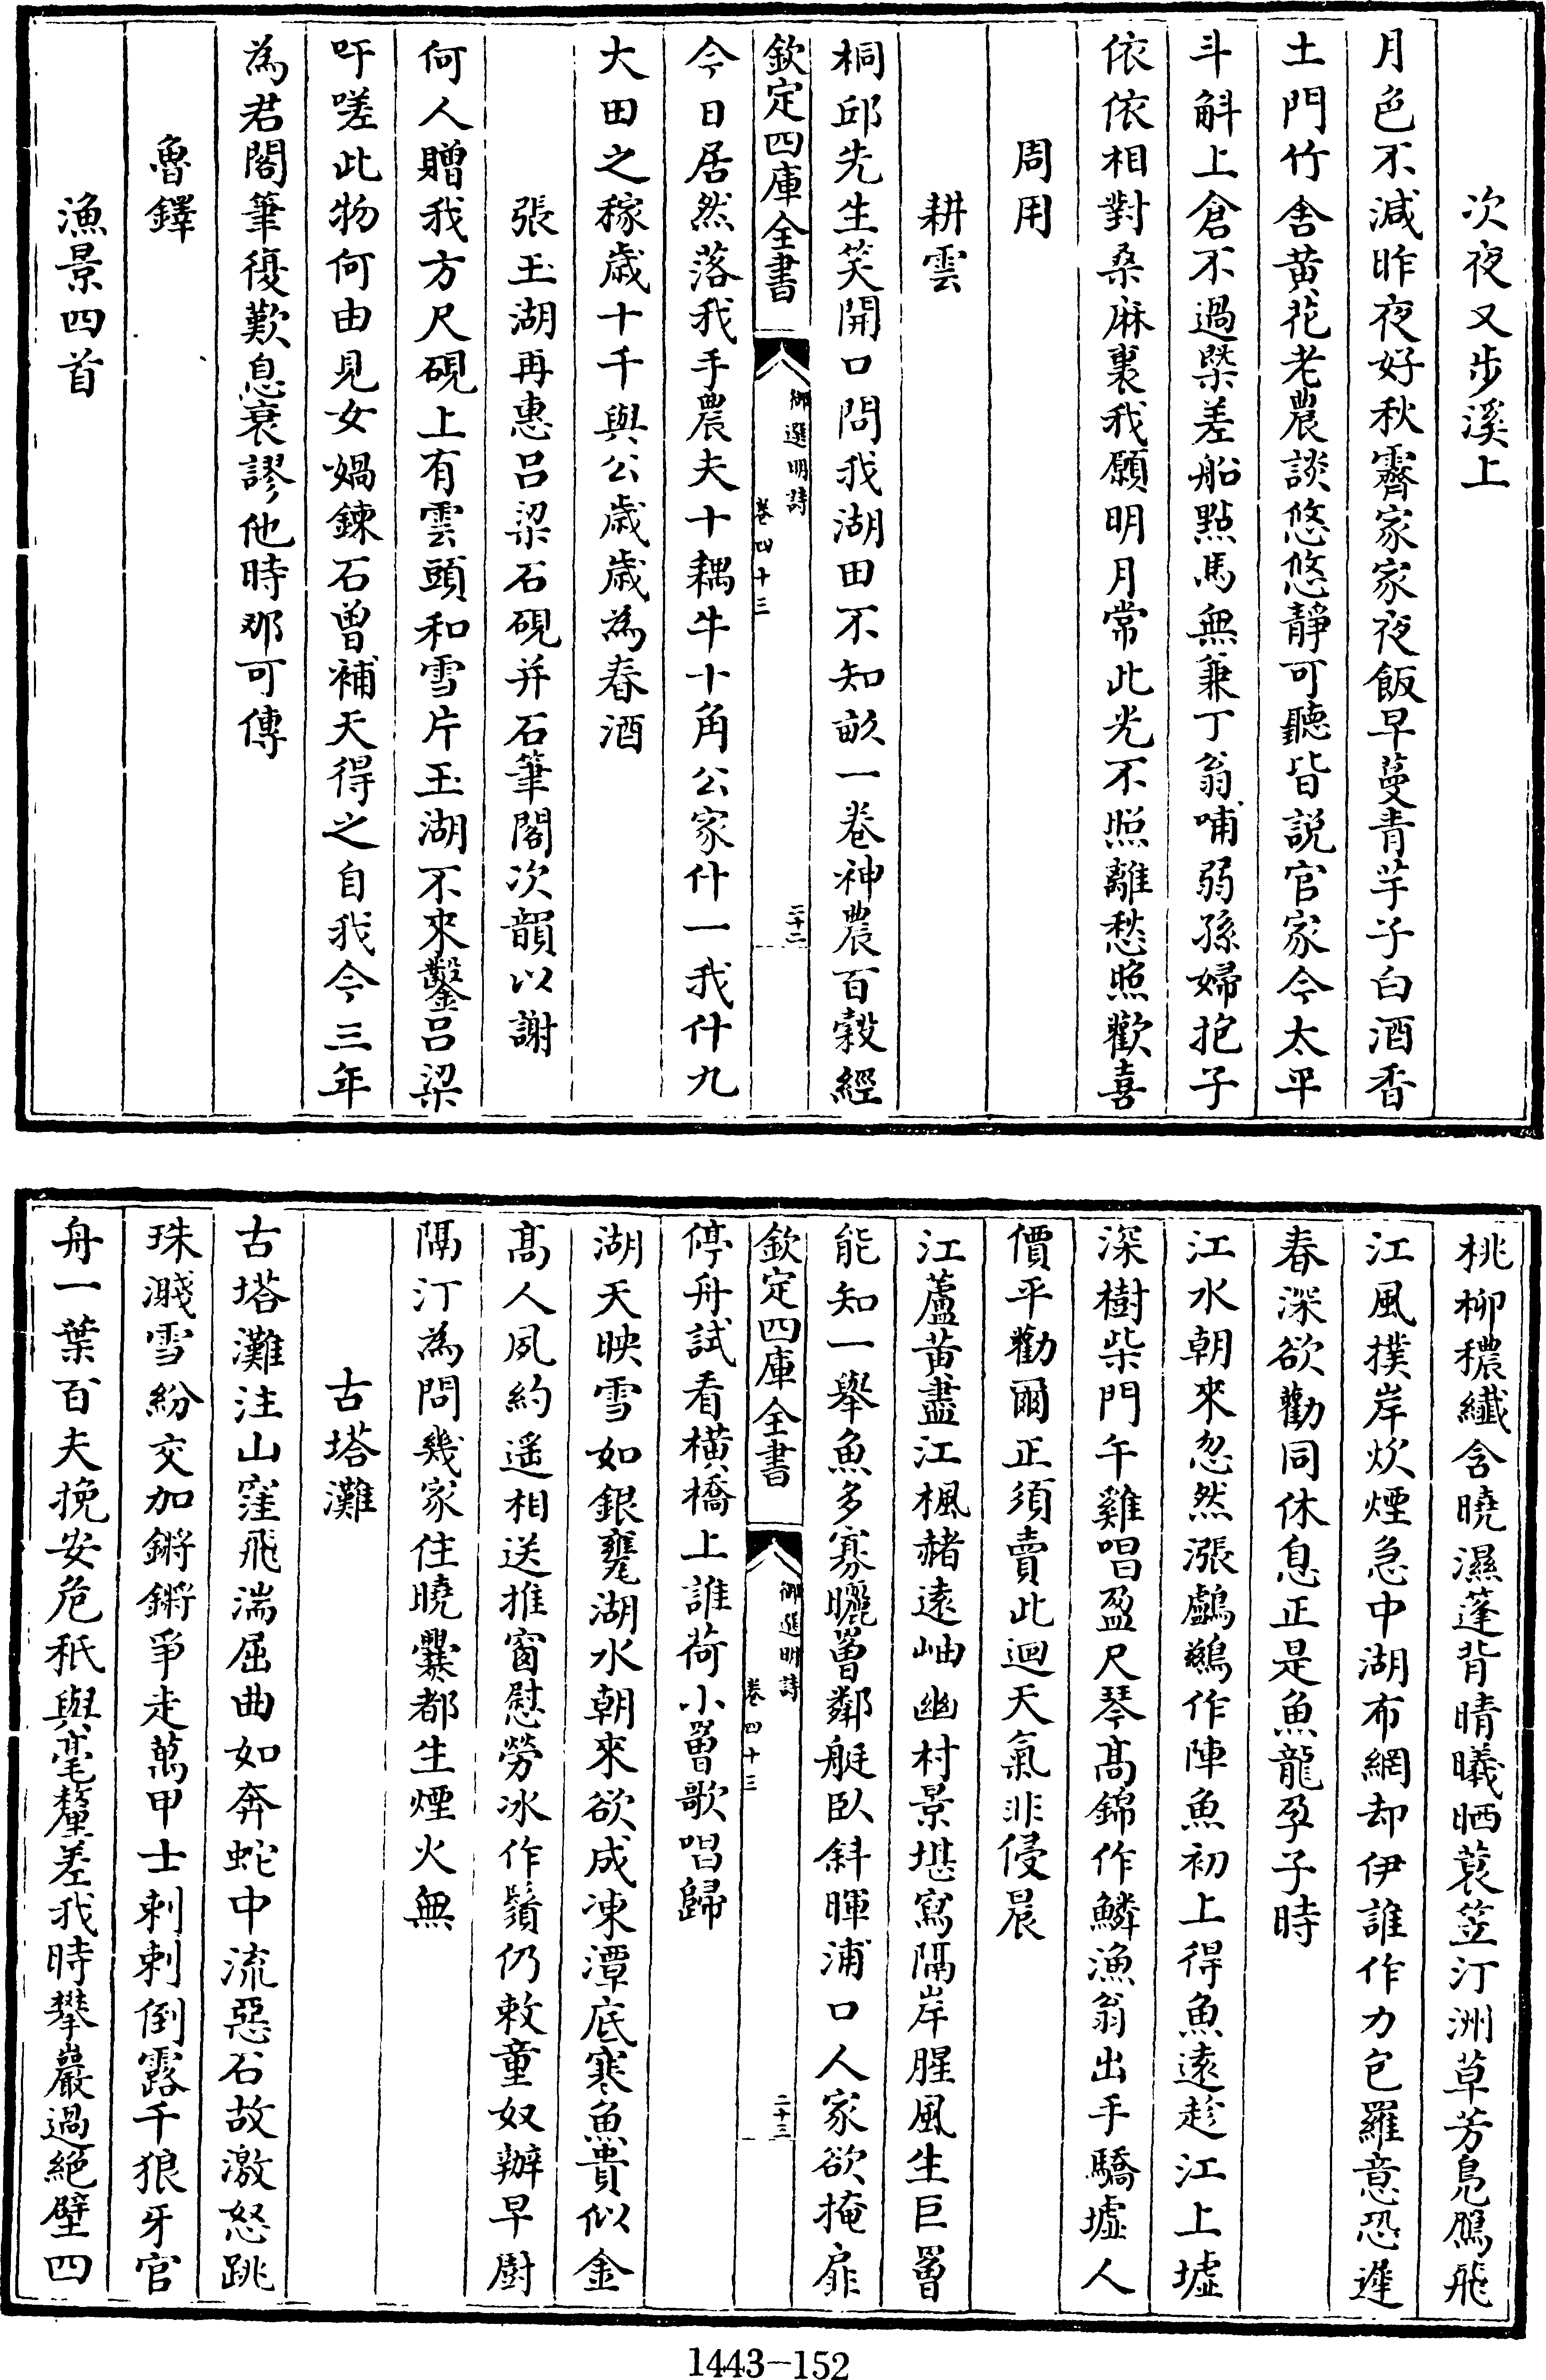 次夜又步溪上
月色不減昨夜好秋霽家家夜飯早蔓青芋子白酒香
土門竹舍黄花老農談悠悠靜可聽皆説官家今太平
斗斛上倉不過槩差船點馬無兼丁翁哺弱孫婦抱子
依依相對桑麻裏我願明月常此光不照離愁照歡喜
周用
耕雲
桐邱先生笑開口問我湖田不知畝一卷神農百穀經
欽定四庫全書
御選明詩
卷四十三
二十二
今日居然落我手農夫十耦牛十角公家什一我什九
大田之稼歲十千與公歲歲為春酒
張玉湖再惠吕梁石硯并石筆閣次韻以謝
何人贈我方尺硯上有雲頭和雪片玉湖不來鑿吕梁
吁嗟此物何由見女媧鍊石曾補天得之自我今三年
為君閣筆復歎息衰謬他時那可傳
魯鐸
漁景四首
桃柳穠纖含曉濕蓬背晴曦晒蓑笠汀洲草芳鳬鴈飛
江風撲岸炊煙急中湖布網却伊誰作力包羅意恐遲
春深欲勸同休息正是魚龍孕子時
江水朝來忽然漲鸕鷀作陣魚初上得魚遠趁江上墟
深樹柴門午雞唱盈尺琴髙錦作鱗漁翁出手驕墟人
價平勸爾正須賣此迴天氣非侵晨
江蘆黄盡江楓赭遠岫幽村景堪寫隔岸腥風生巨罾
能知一舉魚多寡曬罾鄰艇卧斜暉浦口人家欲掩扉
欽定四庫全書
御選明詩
卷四十三
二十三
停舟試看横橋上誰荷小罾歌唱歸
湖天映雪如銀甕湖水朝來欲成凍潭底寒魚貴似金
髙人夙約遥相送推窗慰勞冰作鬚仍敕童奴辦早厨
隔汀為問幾家住曉爨都生煙火無
古塔灘
古塔灘注山窪飛湍屈曲如奔蛇中流惡石故激怒跳
珠濺雪紛交加鏘鏘爭走萬甲士剌剌倒露千狼牙官
舟一葉百夫挽安危秖與毫釐差我時攀巖過絶壁四
1443-152